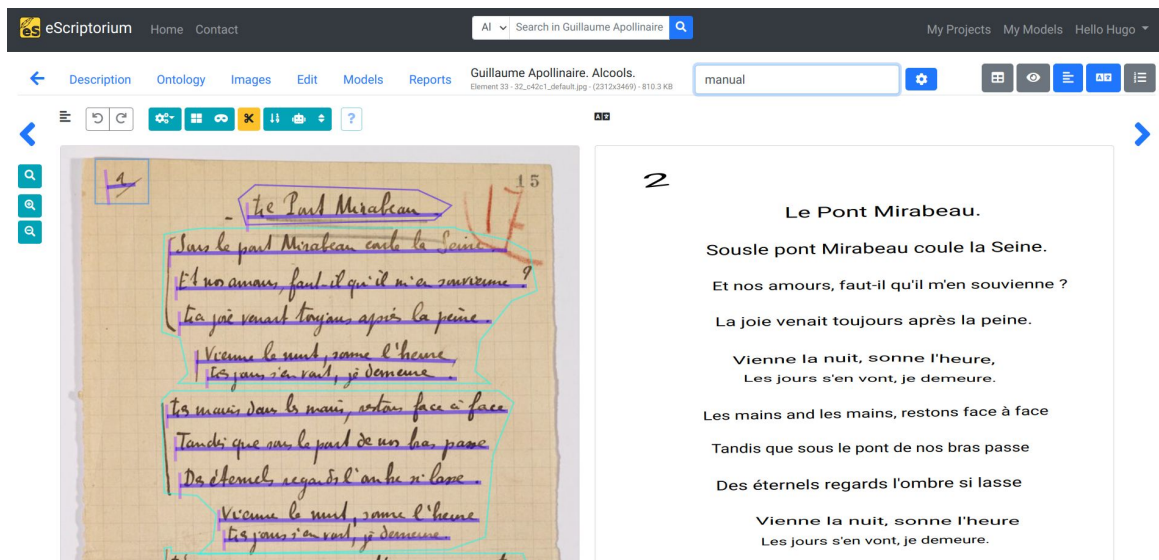 eScriptorium Home Contact
Al Search in Guillaume Apollinaire
My Projects My Models Hello Hugo
Description Ontology Images Edit Models Reports
Guillaume Apollinaire. Alcools.
Element 33 - 32_c42c1_default.jpg - (2312x3469) - 810.3 KB
manual
15
17
Le Pont Mirabeau
Sous le pont Mirabeau coule la Seine
Et nos amours, faut-il qu'il m'en souvienne ?
La joie venait toujours après la peine.
Vienne la nuit, sonne l'heure,
Les jours s'en vont, je demeure.
Les mains dans les mains, restons face à face
Tandis que sous le pont de nos bras passe
Des éternels regards l'onde si lasse.
Vienne la nuit, sonne l'heure
Les jours s'en vont, je demeure.
2
Le Pont Mirabeau.
Sousle pont Mirabeau coule la Seine.
Et nos amours, faut-il qu'il m'en souvienne ?
La joie venait toujours après la peine.
Vienne la nuit, sonne l'heure,
Les jours s'en vont, je demeure.
Les mains and les mains, restons face à face
Tandis que sous le pont de nos bras passe
Des éternels regards l'ombre si lasse
Vienne la nuit, sonne l'heure
Les jours s'en vont, je demeure.